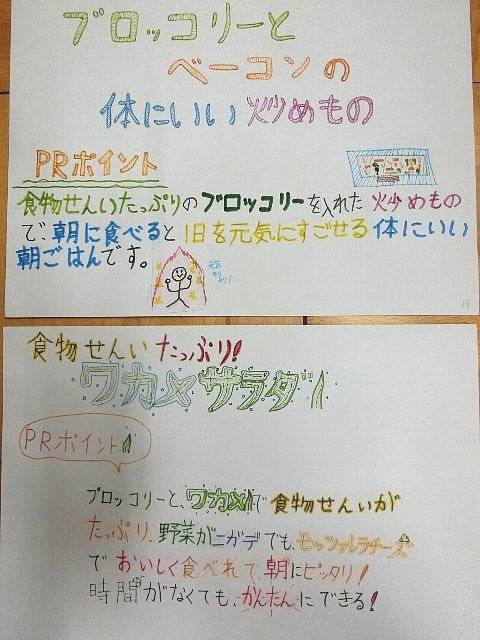 ブロッコリーと
ベーコンの
体にいい炒めもの
PRポイント
食物せんいたっぷりのブロッコリーを入れた炒めもの
で、朝に食べると1日を元気にすごせる体にいい
朝ごはんです。
食物せんいたっぷり!
ワカメサラダ!
PRポイント!
ブロッコリーと、ワカメで食物せんいが
たっぷり。野菜がニガテでも、モッツァレラチーズ
でおいしく食べれて、朝にピッタリ!
時間がなくても、かんたんにできる!